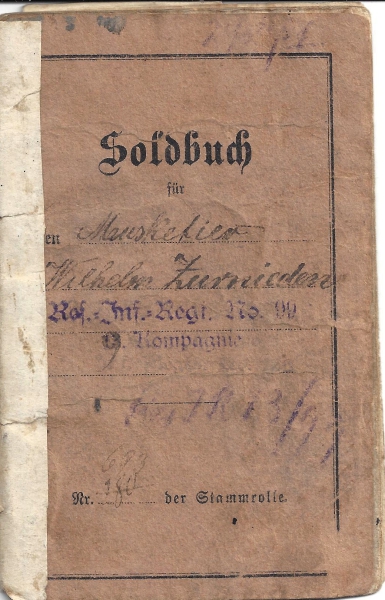 Soldbuch
für
en Musketier
Wilhelm Zurnieden
Res.-Inf.-Regt. No. 99
9 Kompagnie
Nr. der Stammrolle.